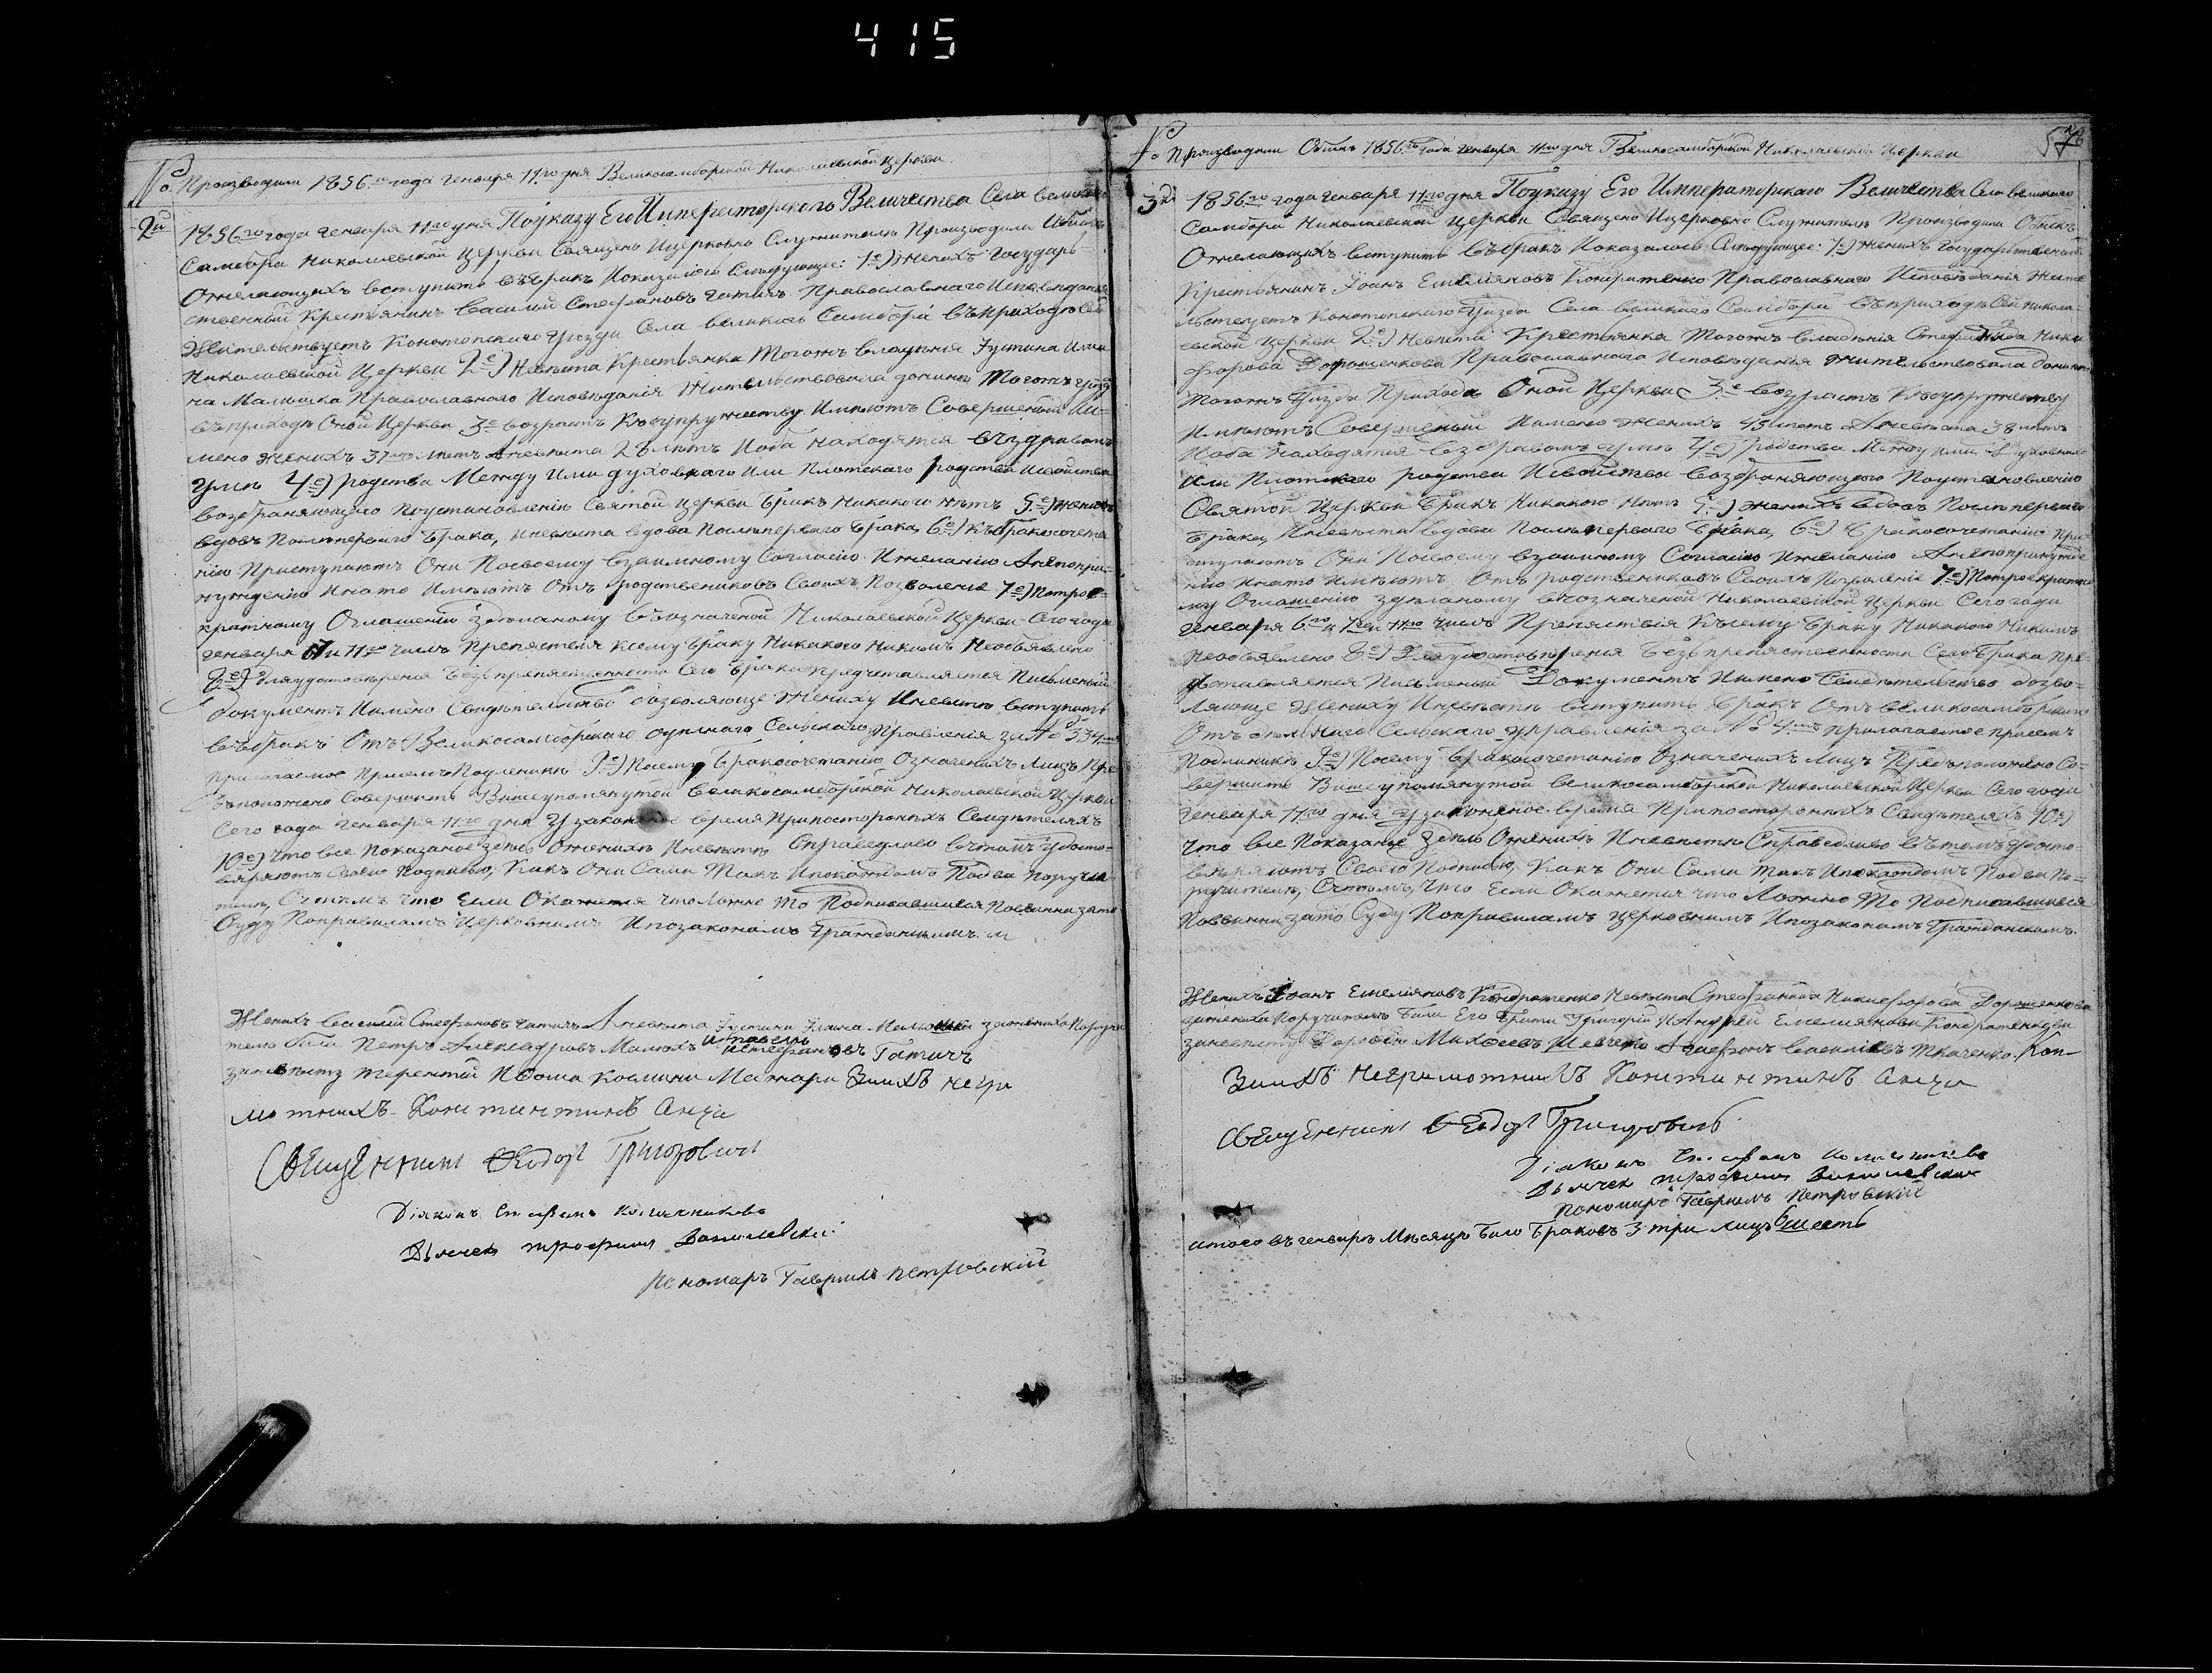 415
№ Производили 1856го года генваря 11го дня Великосамборской Николаевской Церкви
2й 1856го года генваря 11го дня По указу Его Императорского Величества Села великого
Самбора Николаевской Церкви Священо Ицерковно Служители Производили Обиск
Ожелающихъ вступить въбракъ Ноказалось Следующее: 1е) Женихъ Государь-
ственный Крестянинъ Василий Стефановъ Гатичъ Православнаго Исповедания
Жительствуетъ Конотопского Уезда Села великого Самбора въприходе Сей
Николаевской Церкви 2е) Невеста Крестьянка Тогожъ владения Устина
Малишка Православнаго Исповеданія Жительствовала доныне Тогожъ Уезда
въприходе Оной Церкви 3е возрастъ Ксупружеству Имеютъ Совершеный Им-
мено Женихъ 37мъ летъ Аневеста 28 летъ Иоба находятся въздравомъ
Уме 4е) родства Между Ими духовнаго Или Плотскаго родства Исвойства
возбраняющаго Поустановленію Святой Церкви бракъ Никакого нетъ 5е) Женихъ
вдовъ После первого брака, Иневеста вдова После первого брака, 6е) Къбракосочета-
нію Приступаютъ Они Посвоему взаимному Согласію Ижеланію Анепопри-
нуждению Инато Имеютъ Отъ родствениковъ Своихъ Позволение 7е) Потрое-
кратному Оглашению зделаному въозначеной Николаевской Церкви Сего года
генваря 7 и 11го числъ Препятствия ксему браку Никакого Никемъ Необявлено
8е) Для удостоверения безпрепятственности Сего брака представляется Писменый
документъ Имено Свидетельство дозволяюще Жениху Иневесте вступить
въбракъ Отъ Великосамборского Сельского Управления за №
прилагаемое присемъ Подленикъ 9е) Посему бракосочетанію Означеныхъ Лицъ Пре-
дположено Совершить Вишеупомянутой Великосамборской Николаевской Церкви
Сего года генваря 11го дня Узаконеное время Припостороныхъ Свидетеляхъ
10е) Что все Показаное здесь Ожених Иневесте Справедливо втомъ Удосто-
веряютъ Своею Подписью, Какъ Они Сами Такъ Ипокаждомъ Подва Поручи-
теля, Стемъ что Если Окажется что ложно То Подписавшиеся Повинни зато
Суду Поправиламъ Церковнимъ Ипозаконамъ Гражданскимъ
Женихъ Василий Стефановъ Гатичъ Аневеста Устина Малюшка зажениха Поручи-
тель били Петръ Александровъ Малюхъ Стефановъ Гатичъ
заневесту терентій Ифома Космини Мажари Заихъ негра
мотнихъ Константинъ Анца
Священникъ Феодоръ Григоровичъ
Діаконъ Стефанъ Колесниковъ
Дьячек трофимъ Виполевский
Пономаръ Гаврилъ Петровскій
57
№ Производили Обискъ 1856го года генваря 11го дня Великосамборской Николаевской Церкви
3й 1856го года генваря 11го дня По указу Его Императорскаго Величества Села великого
Самбора Николаевской Церкви Священо Ицерковно Служители Производили Обискъ
Ожелающихъ вступить въбракъ Иоказалось Следующее: 1е) Женихъ Государственый
Крестьянинъ Іоанъ Емелияновъ Кондратенко Православнаго Исповеданія Жите-
льствуетъ Конотопского Уезда Села великого Самбора въприходе Сей Никола-
евской Церкви 2е) Невеста Крестьянка Тогожъ владенія Стефанида Ники-
форова Дорошенкова Православнаго Исповеданія жительствовала доныне
Тогожъ Уезда Прихода Оной Церкви 3е возрастъ Ксупружеству
Имеютъ Совершеный Именно Женихъ 45 летъ Аневеста 38 летъ
Иоба Находятся вздравомъ уме 4е) родства Между ими духовнаго
Или Плотскаго родства Исвойства возбраняющаго Поустановлению
Святой Церкви бракъ Никакого Нетъ 5е) Женихъ вдовъ После первого
брака, Иневеста вдова После первого брака, 6е) бракосочетанію При-
ступаютъ Они Посвоему взаимному Согласию Ижеланию Анепопринужде-
нию Инато имеютъ Отъ родствениковъ Своихъ Позволеніе 7е) Потроекратно-
му Оглашению зделаному въозначеной Николаевской Церкви Сего года
Генваря 6го и 11го числъ Препятствія Ксему браку Никакого Никемъ
Необявлено 8е) Для Удостоверения безпрепятственности Сего брака Пре-
дставляется Писменый Документъ Имено Свидетельство дозво-
ляюще Жениху Иневесте вступить въбракъ Отъ великосамборского
Сельскаго Управления за № прилагаемое присемъ
Подлиникъ 9е) Посему бракосочетанію Означеныхъ Лицъ Предположено Со-
вершить Вишеупомянутой великосамборской Николаевской Церкви Сего года
Генваря 11го дня Узаконеное время Припостороныхъ Свидетеляхъ 10е)
Что все Показаное здесь Ожених Иневесте Справедливо втомъ Удосто-
веряютъ Своею Подписью, Какъ Они Сами Такъ Ипокаждомъ Подва По-
ручителя, Стемъ, Что Если Окажется что Ложно То Подписавшиеся
Повинни зато Суду Поправиламъ Церковнимъ Ипозаконамъ Гражданскимъ.
Женихъ Іоанъ Емелияновъ Кондратенко Невеста Стефанида Никифорова Дорошенкова
зажениха Поручителемъ били Его брати Григорий ИАндрей Емелиянови Кондратенкови
заневесту Михеевъ Шевченко Агафонъ Василиевъ Ткаченко. Кон-
Заихъ неграмотнихъ Константинъ Анца
Священникъ Феодоръ Григоровичъ
Діаконъ Стефанъ Колесниковъ
Дьячек трофимъ Виполевский
Пономаръ Гаврилъ Петровский
итого въгенваре Месяце било браковъ 3 три лицъ 6 шесть